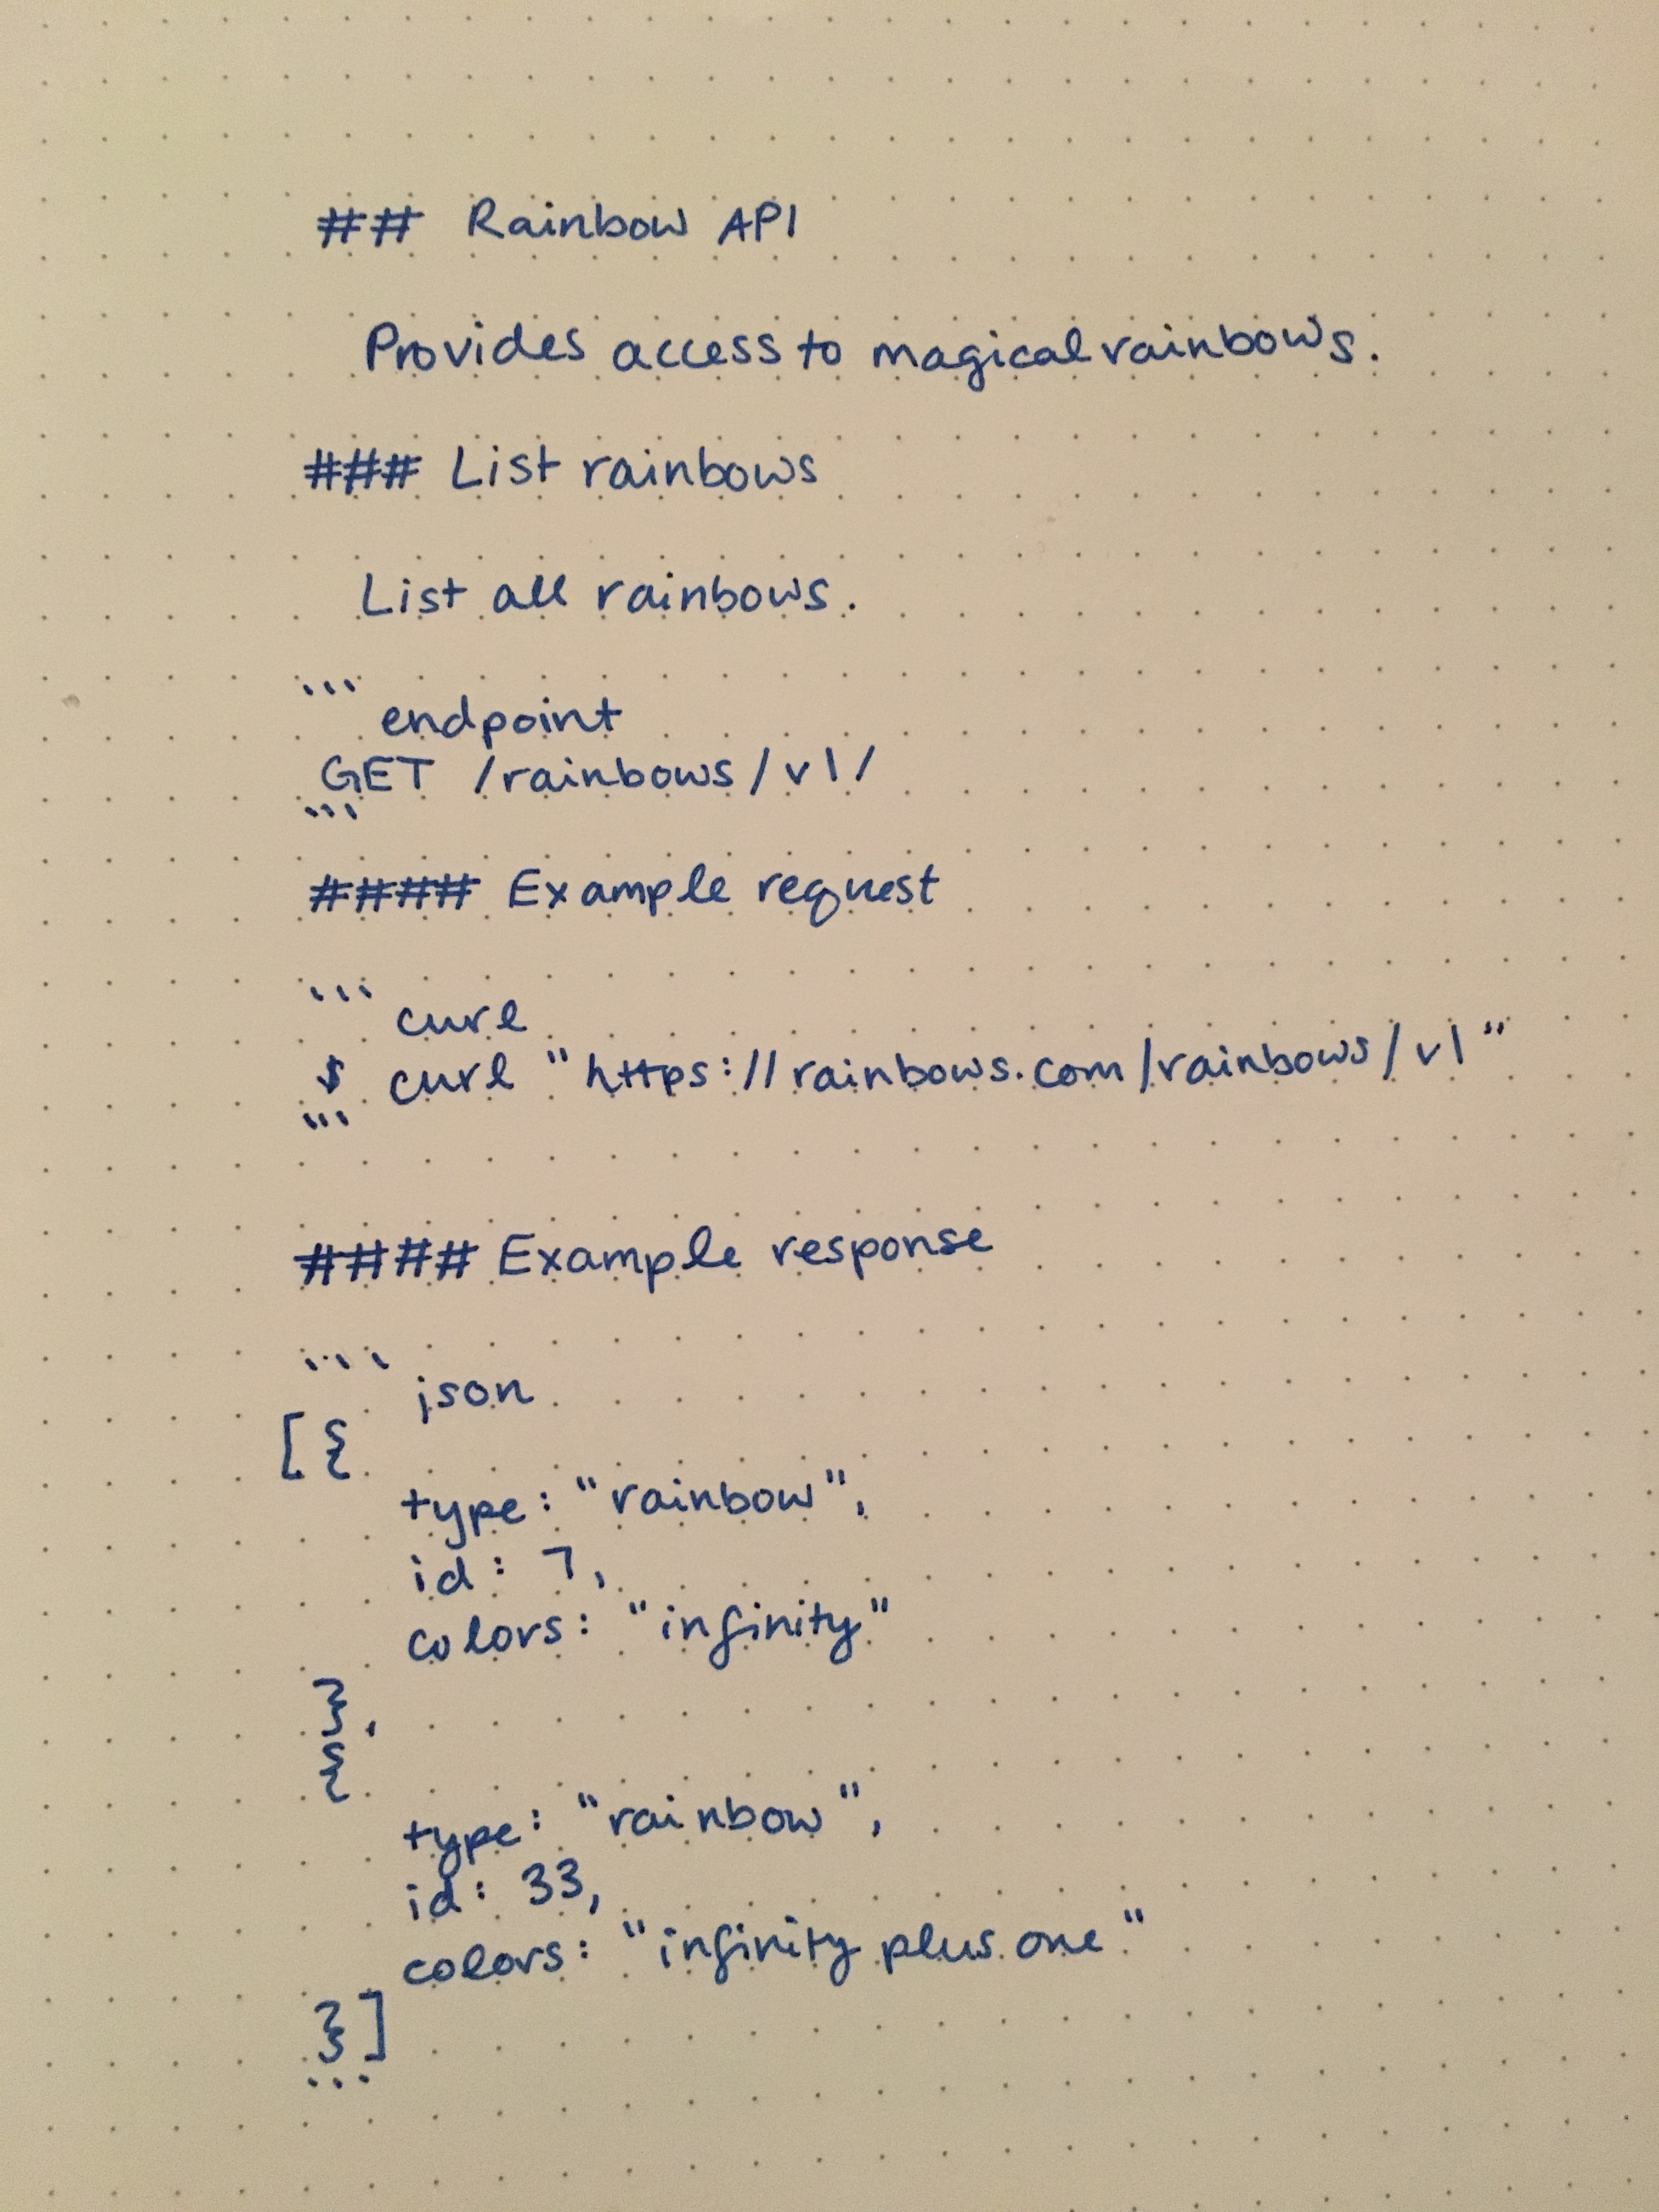 ## Rainbow API
Provides access to magical rainbows.
### List rainbows
List all rainbows.
``` endpoint
GET /rainbows/v1/
```
#### Example request
``` curl
$ curl "https://rainbows.com/rainbows/v1"
```
#### Example response
``` json
[{
type: "rainbow",
id: 7,
colors: "infinity"
},
{
type: "rainbow",
id: 33,
colors: "infinity plus one"
}]
```